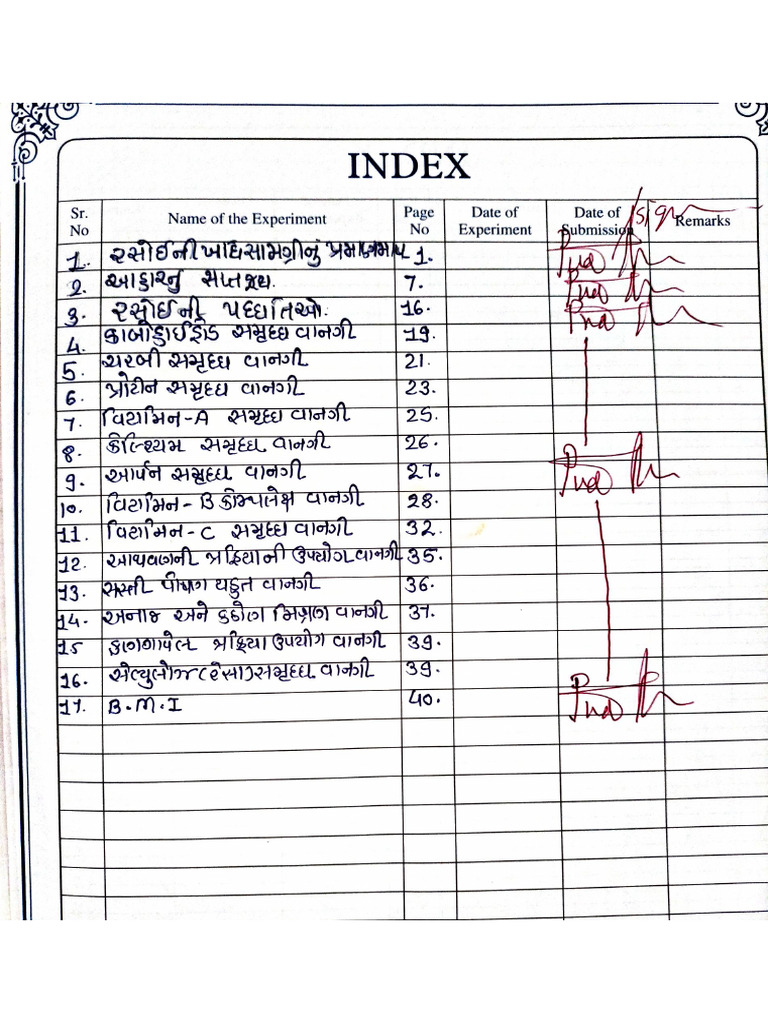 INDEX
Sr. No Name of the Experiment Page No Date of Experiment Date of Submission /sign Remarks
1. રસોઈની ખાદ્યસામગ્રીનું પ્રમાણમાપ 1.
2. આહારનું 7.
3. રસોઈની પદ્ધતિઓ. 16.
4. કાર્બોહાઈડ્રેડ સમૃધ્ધ વાનગી 19.
5. ચરબી સમૃધ્ધ વાનગી 21.
6. પ્રોટીન સમૃધ્ધ વાનગી 23.
7. વિટામિન-A સમૃધ્ધ વાનગી 25.
8. કેલ્શિયમ સમૃધ્ધ વાનગી 26.
9. આર્યન સમૃધ્ધ વાનગી 27.
10. વિટામિન-B કોમ્પલેક્ષ વાનગી 28.
11. વિટામિન-C સમૃધ્ધ વાનગી 32.
12. આથવણની પ્રક્રિયાની ઉપયોગ વાનગી 35.
13. સસ્તી પોષણ યુક્ત વાનગી 36.
14. અનાજ અને કઠોળ મિશ્રણ વાનગી 37.
15 ફણગાવેલ પ્રક્રિયા ઉપયોગ વાનગી 39.
16. સેલ્યુલોજ (રેસા) સમૃધ્ધ વાનગી 39.
17. B.M.I 40.